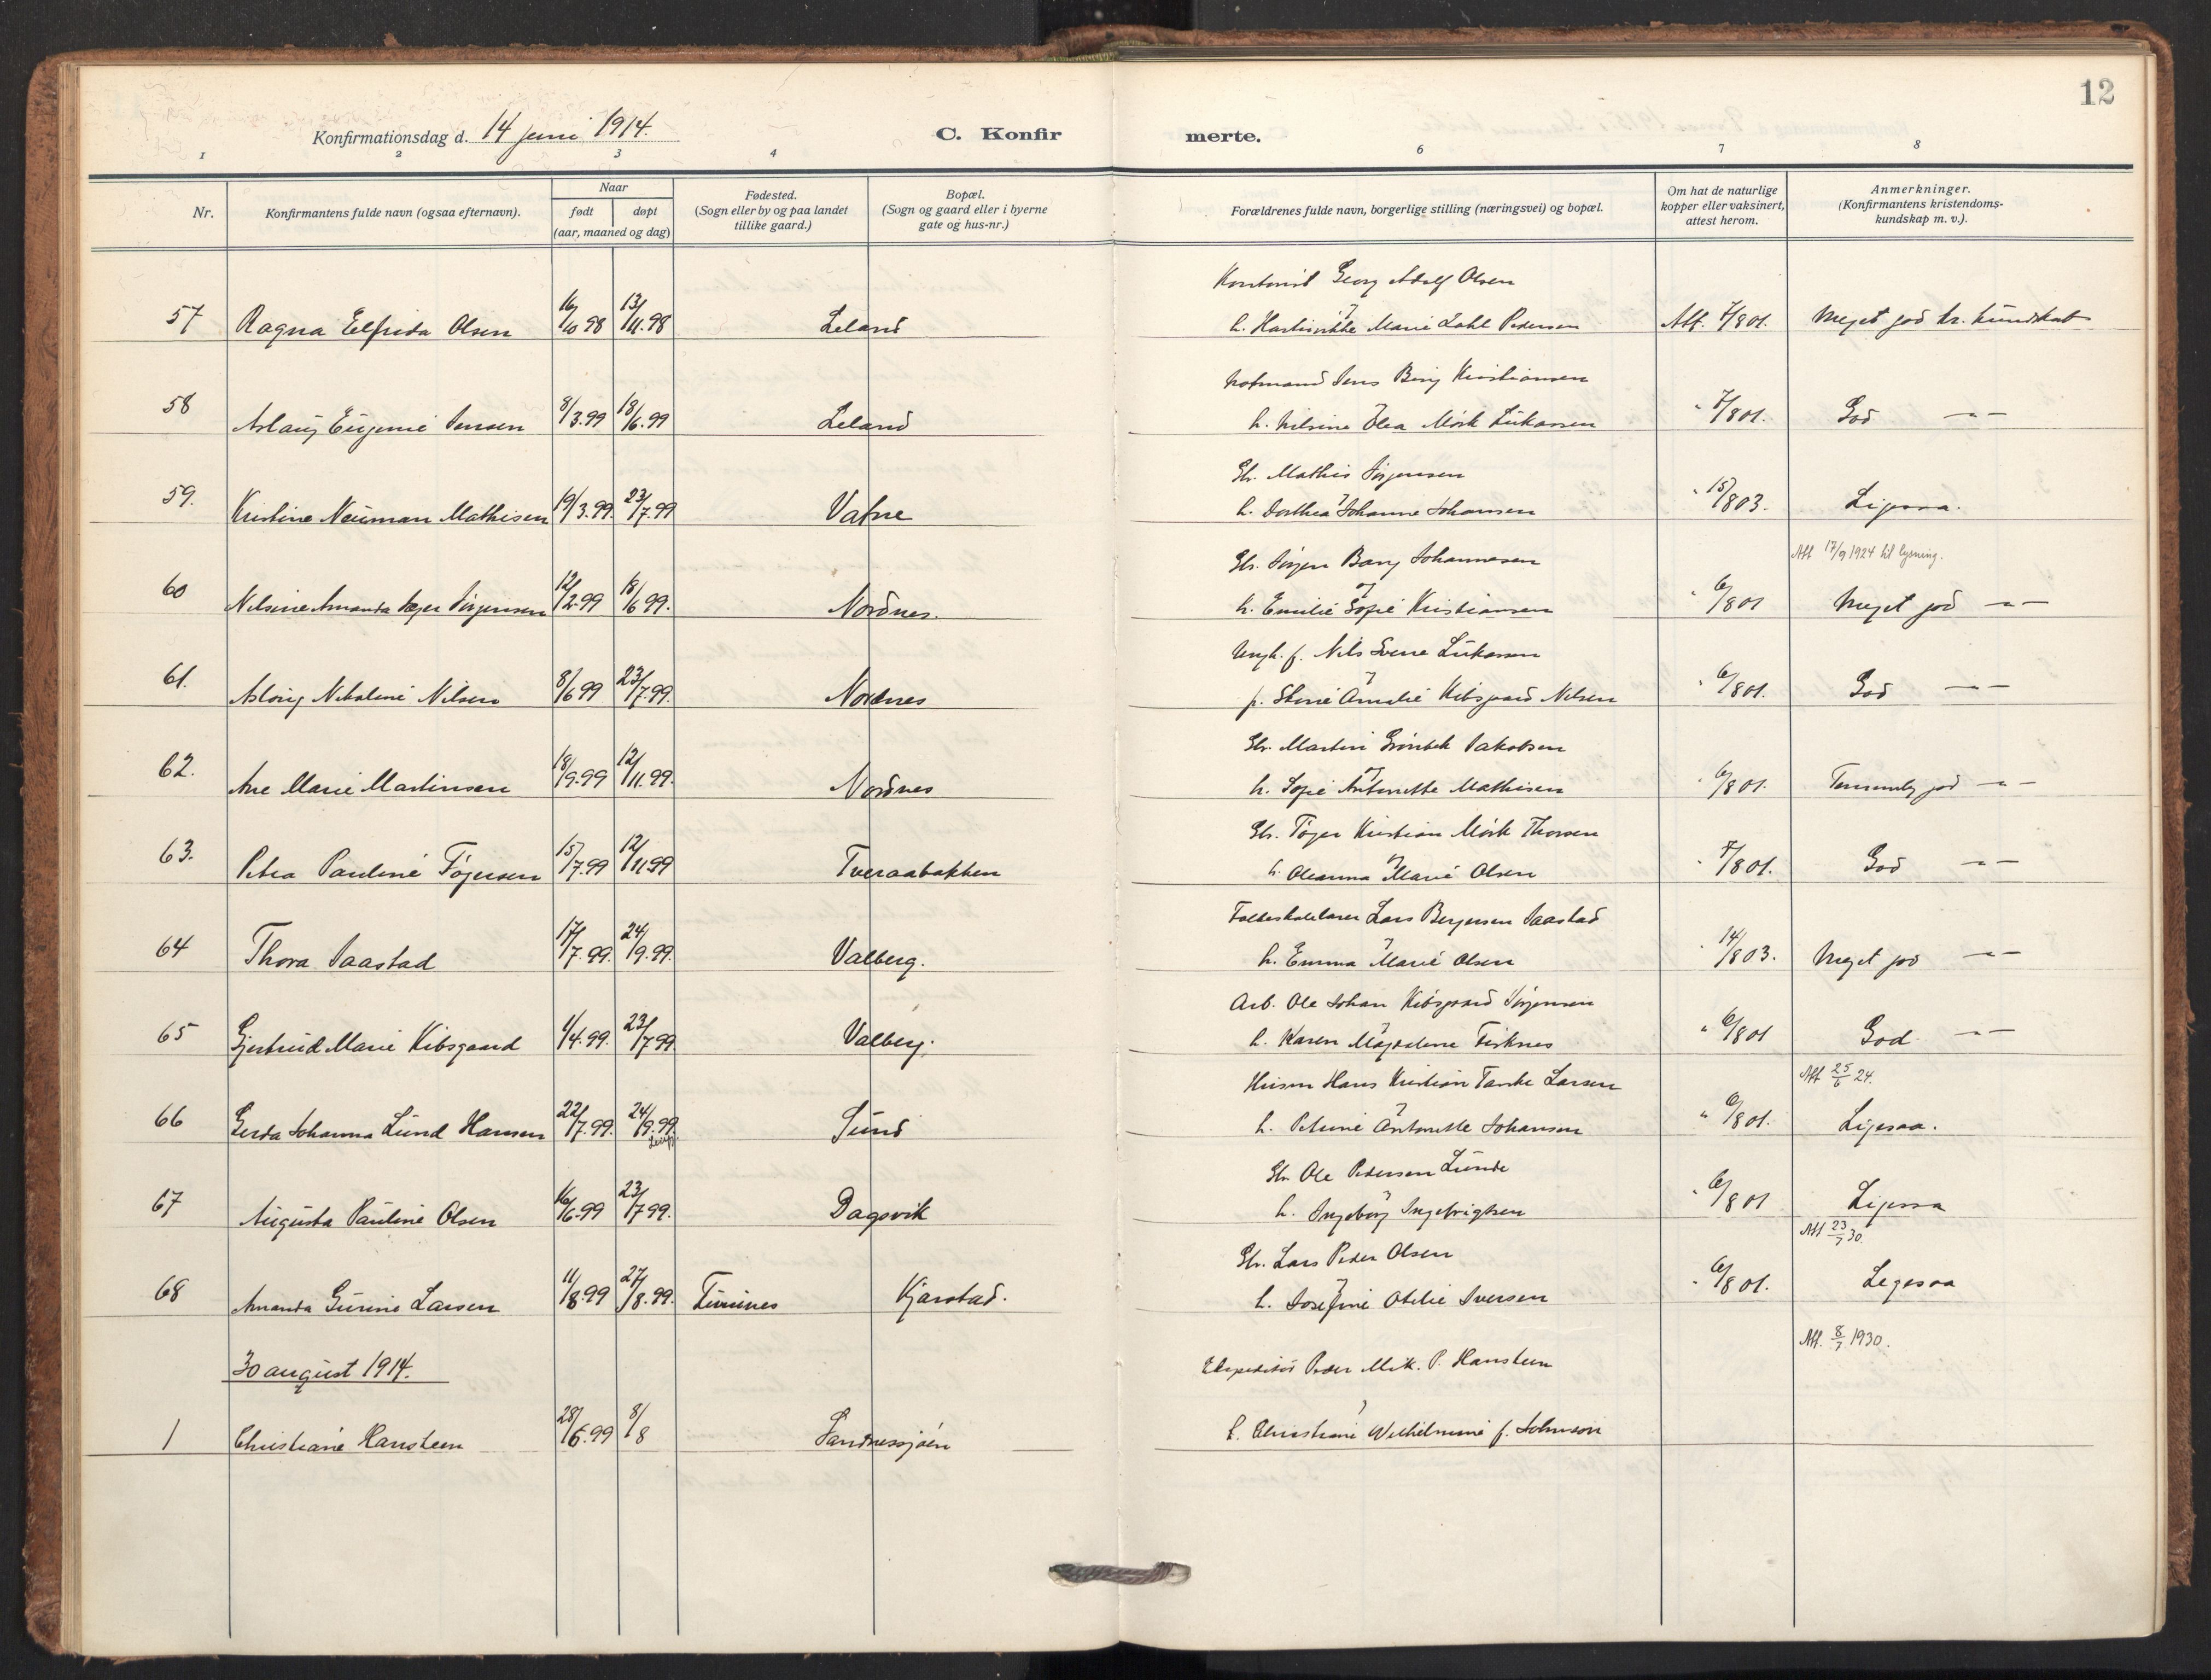 12
Konfirmationsdag d. 14 juni 1914.
C. Konfirmerte.
1 2 3 4 6 7 8
Nr.
Konfirmantens fulde navn (ogsaa efternavn).
Naar
født døpt
(aar, maaned og dag)
Fødested.
(Sogn eller by og paa landet
tillike gaard.)
Bopæl.
(Sogn og gaard eller i byerne
gate og hus-nr.)
Forældrenes fulde navn, borgerlige stilling (næringsvei) og bopæl.
Om hat de naturlige
kopper eller vaksinert,
attest herom.
Anmerkninger.
(Konfirmantens kristendoms-
kundskap m. v.).
Kontorist Georg Adolf Olsen
57 Ragna Elfrida Olsen 16/10 98 13/11.98 Leland
h. Marie Dahl Pedersen Att. 7/8 01. Meget god kr. kundskab
Jens Berg Kristiansen
58 Aslaug Eugenie Jensen 8/3.99 18/6.99 Leland
h. Nilsine Olea Mørk Lukassen " 7/8 01. God — " —
Gbr. Mathis Jørgensen
59. Kristine Neuman Mathisen 19/3.99. 23/7.99 Vatne
h. Dorthea Johanne Johansen " 15/8 03. Ligesaa.
Att 17/9 1924 til lysning.
Gbr. Jørgen Bang Johannesen
og
60 Nilsine Amanda Jørgensen 12/2.99 18/6 99. Nordnes.
h. Emilie Sofie Kristiansen " 6/8 01 Meget god — " —
Ungk. f. Nils Sverre Lukassen
61. Aslaug Nikoline Nilsen 8/6 99 23/7.99. Nordnes
p. Stine Amalie Kibsgaard Nilsen " 6/8 01. God — " —
Gbr. Martin Grønbek Jakobsen
og
62. Ane Marie Martinsen 18/9.99 12/11.99. Nordnes
h. Sofie Antonette Mathisen " 6/8 01. Temmelig god — " —
Gbr. Tøger Kristian Mørk Thorsen
63. Petra Pauline Tøgersen 15/7.99 12/11.99 Tveraabakken
h. Oleanna Marie Olsen " 7/8 01. God — " —
Folkeskolelærer Lars Bergersen Saastad
64 Thora Saastad 17/7.99. 24/9.99. Valberg.
h. Emma Marie Olsen " 14/8 03. Meget god — " —
Arb. Ole Johan Kibsgaard Jørgensen
65 Gjertrud Marie Kibsgaard 1/4.99. 23/7 99. Valberg.
h. Karen Magdalene Fisknes " 6/8 01 God — " —
Att 25/6 24.
Husm Hans Kristian Tanke Larsen
66 Gerda Johanna Lund Hansen 22/7.99. 24/9.99. Sund
h. Petrine Antonette Johansen " 6/8 01. Ligesaa.
Gbr. Ole Pedersen Lunde
67 Augusta Pauline Olsen 16/6.99 23/7 99. Dagsvik
h. Ingeborg Ingebrigtsen " 6/8 01 Ligesaa
Att 23/7 30.
Gbr. Lars Peder Olsen
68 Amanda Gurine Larsen 11/8.99 27/8.99. Kjarstad.
h. Josefine Otilie Iversen " 6/8 01. Ligesaa
Att. 8/7 1930.
30 august 1914.
Ekspeditør Peder Mik. P. Hansteen
1 Christiane Hansteen 28/6.99 8/8 Sandnessjøen
h. Christiane Wilhelmine f. Johnson